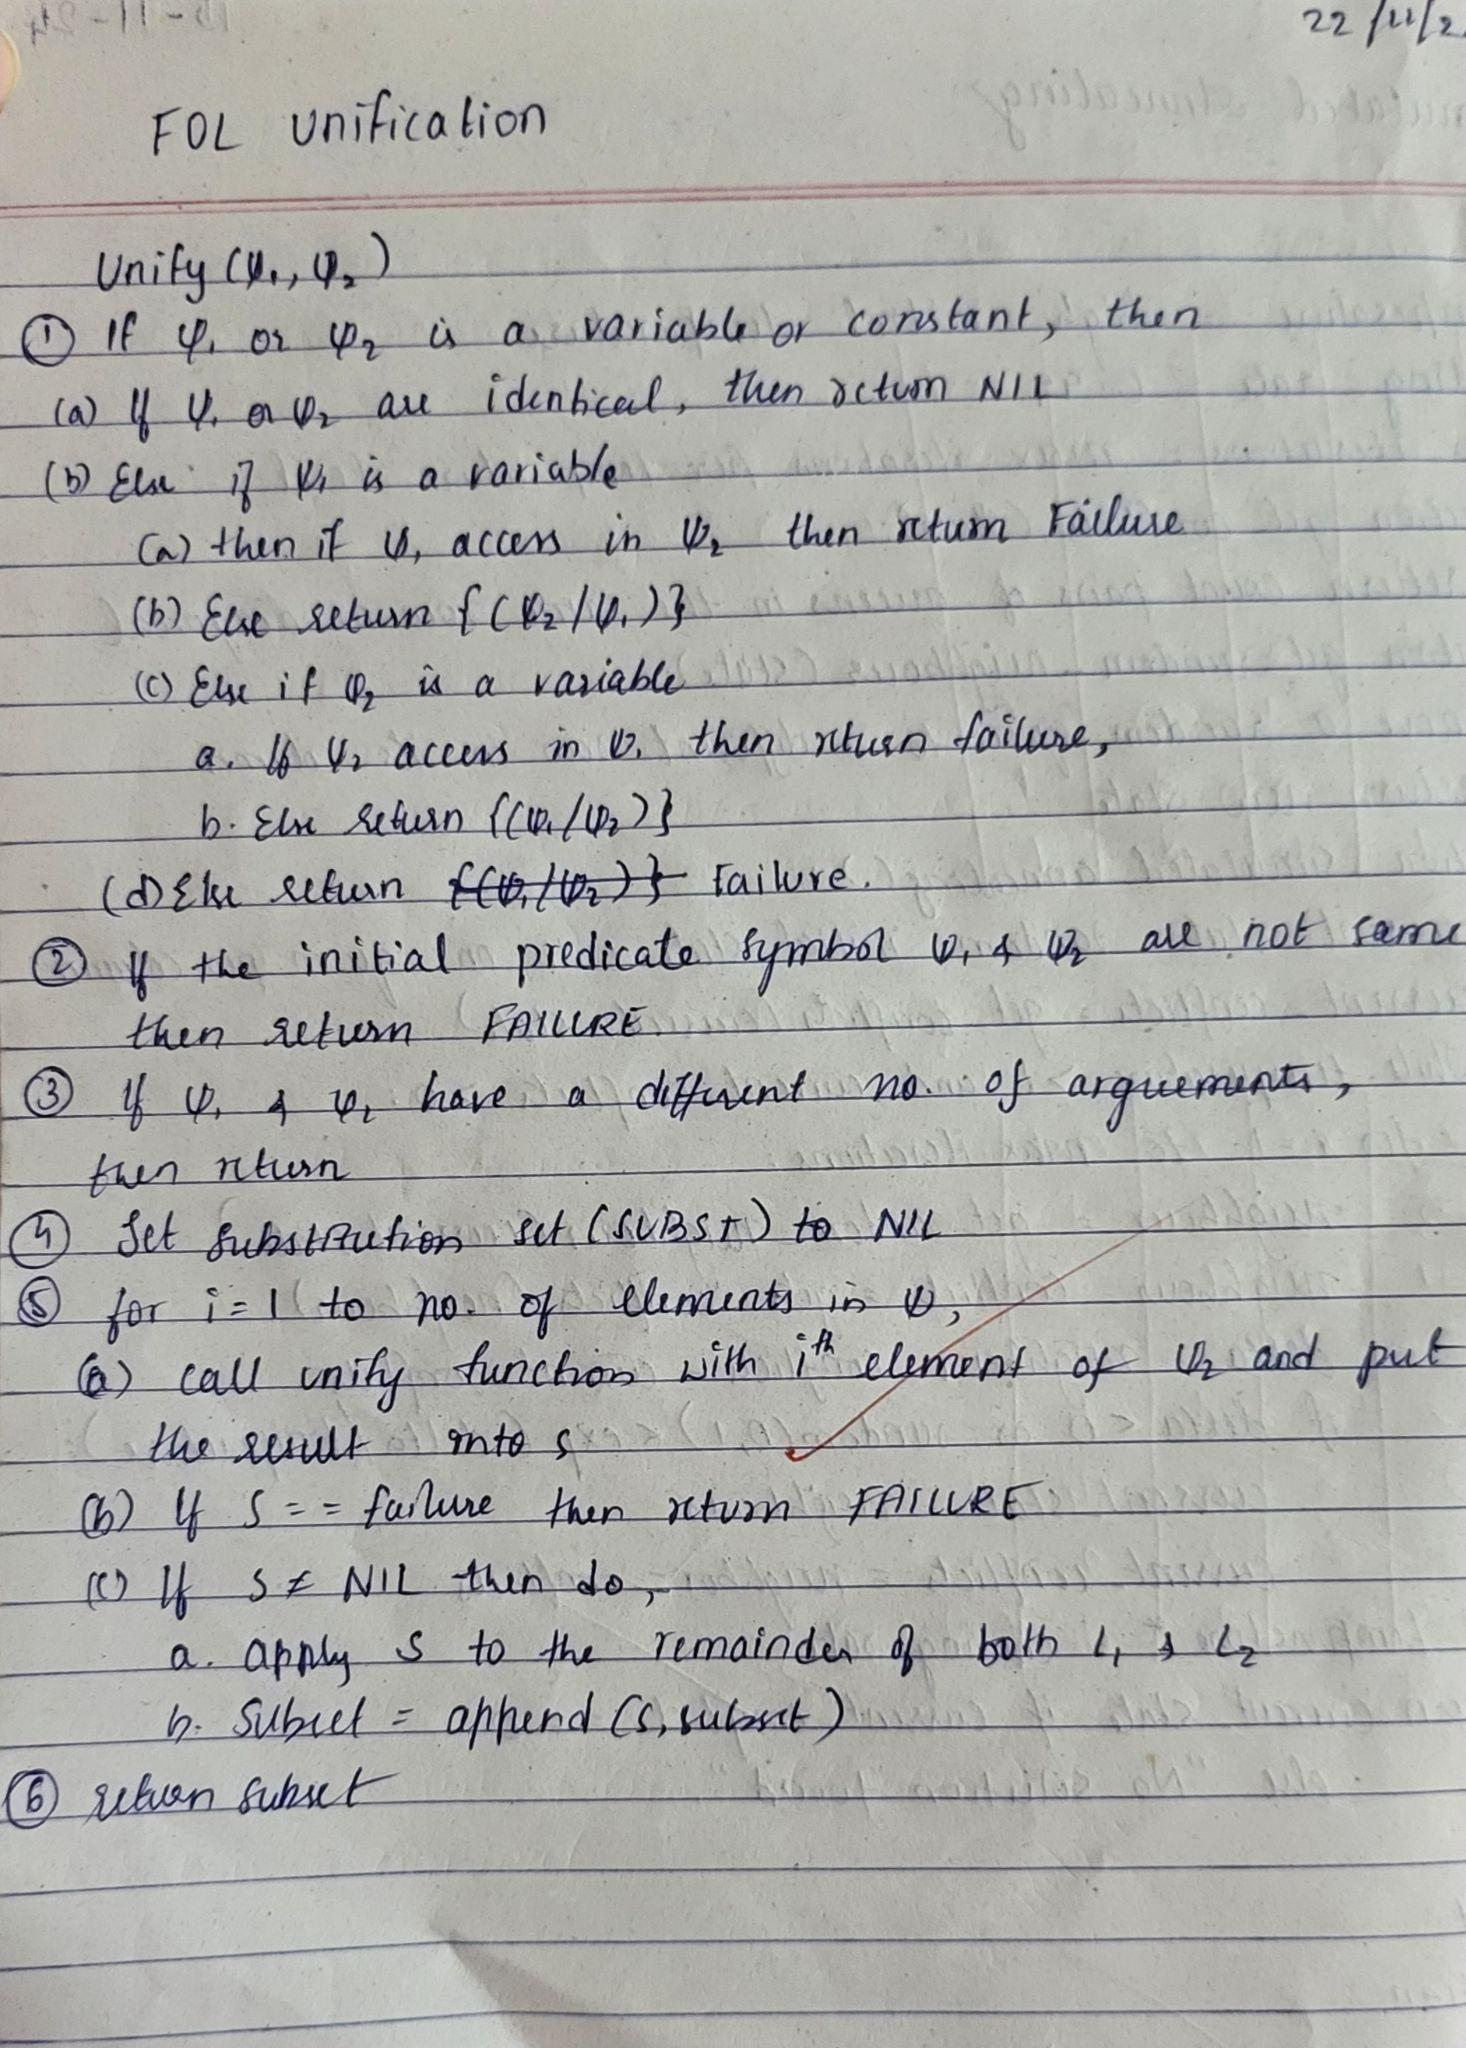 22/11/2
FOL Unification
Unify (Ψ₁, Ψ₂)
① If Ψ₁ or Ψ₂ is a variable or constant, then
(a) If Ψ₁ or Ψ₂ are identical, then return NIL
(b) Else if Ψ₁ is a variable
(a) then if Ψ₁ access in Ψ₂ then return Failure
(b) Else return {(Ψ₂/Ψ₁)}
(c) Else if Ψ₂ is a variable
a. If Ψ₂ access in Ψ₁ then return failure,
b. Else return {(Ψ₁/Ψ₂)}
(d) Else return {(Ψ₁/Ψ₂)} Failure.
② If the initial predicate symbol Ψ₁ & Ψ₂ are not same
then return FAILURE.
③ If Ψ₁ & Ψ₂ have a different no. of arguements,
then return
④ Set Substitution set (SUBST) to NIL
⑤ for i=1 to no. of elements in Ψ,
(a) call unify function with iᵗʰ element of Ψ₂ and put
the result into s
(b) If S == failure then return FAILURE
(c) If S ≠ NIL then do,
a. apply S to the remainder of both L₁ & L₂
b. Subset = append (S, subset)
⑥ return subset